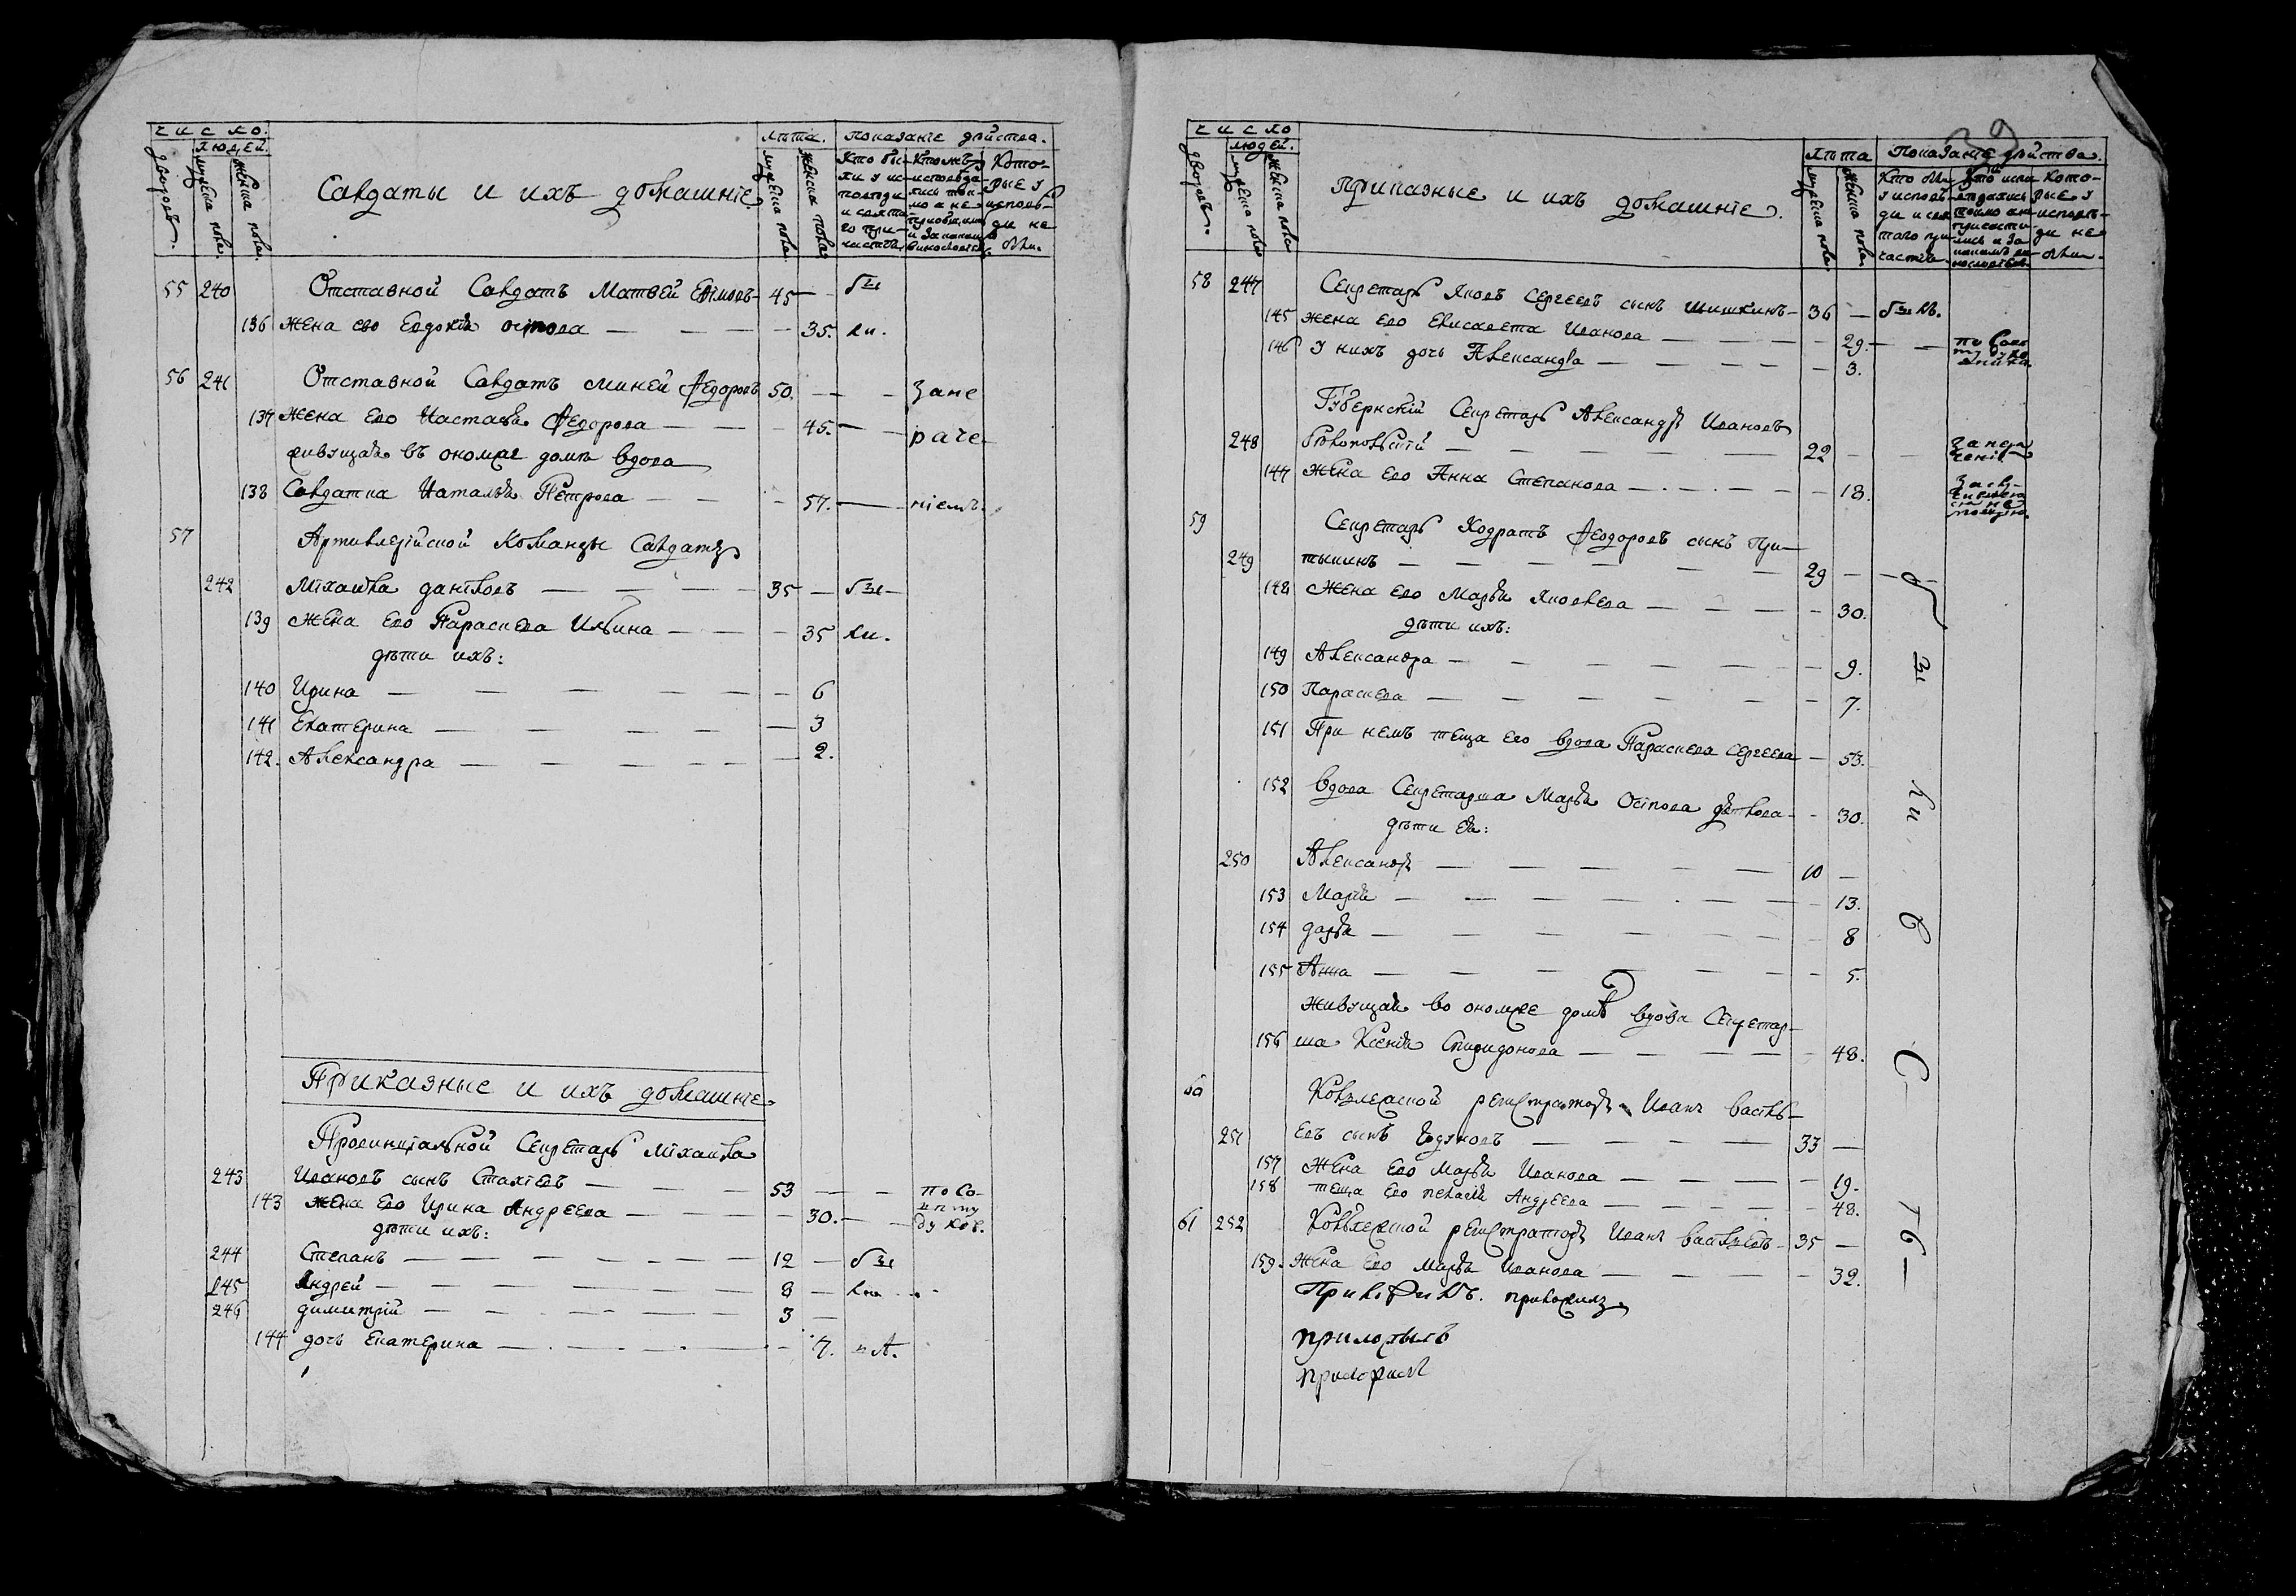 число.
людей.
дворовъ.
мужеска пола.
женска пола.
Салдаты и ихъ домашнїе.
лѣта.
мужеска пола.
женска пола.
Показанїе дѣйства.
Кто бы-
ли у ис-
повѣди
и свята-
го при-
частїя.
Кто исповѣда-
лись ток-
мо а не
Кото-
рые у
исповѣ-
ди не
были.
55 240 Отставной Салдатъ Матвей Ефимовъ 45 — бы
136 жена ево Евдокїя осипова — — — — 35. ли.
56 241 Отставной Салдатъ Миней Федоровъ 50. — — Зане
137 Жена Ево Настасья Федорова — — — 45. — — раче-
живущая въ ономже домѣ вдова
138 Салдатка Наталья Петрова — — — 57. — нїемъ.
57 Артилерїйской Команды Салдатъ
242 Михайла данїловъ — — — — 35 — бы-
139 Жена Ево Параскева Ильина — — — 35 ли.
дѣти ихъ:
140 Ирина — — — — — — 6
141 Екатерина — — — — — — 3
142. Александра — — — — — — 2.
Приказные и ихъ домашнїе.
Провинцїальной Секретарь Михайла
243 Ивановъ сынъ Стахїевъ — — — 53 — —
143 жена Ево Ирина Андреева — — — — 30. —
дѣти ихъ:
244 Степанъ — — — — — — 12 — бы
245 Андрей — — — — — — 8 — ли
246 димитрїй — — — — — — 3 —
144 дочь Екатерина — — — — — 7.
39
число
людей.
дворовъ.
мужеска пола
женска пола
приказные и ихъ домашнїе.
лѣта
мужеска пола.
женска пола.
Показанїе дѣйства.
Кто бы-
у исповѣ-
ди и свя
таго при-
частїя.
Кото-
рые у
исповѣ-
ди не
были.
58 247 Секретарь Яковъ Сергеевъ сынъ Шишкинъ — 36 — были.
145 жена Ево Елисавета Иванова — — — — 29. — —
146 у нихъ дочь Александра — — — — — 3.
Губернскїй Секретарь Александръ Ивановъ
248 — — — — — 22 — —
147 Жена Ево Анна Степанова — — — — — 18.
59 Секретарь Кодратъ Феодоровъ сынъ При-
249 тыкинъ — — — — — — 29 — — б
148 Жена Ево Марья Яковлева — — — — 30.
дѣти ихъ:
149 Александра — — — — — — 9. ы
150 Параскева — — — — — — 7.
151 При немъ теща Ево вдова Параскева Сергеева — 53.
152 вдова Секретарша Марья Осипова — 30. ли
дѣти Ея:
250 Александръ — — — — — 10 —
153 Марїя — — — — — — 13. в
154 дарья — — — — — — 8
155 Анна — — — — — — 5.
живущая во ономже домѣ вдова Секретар-
156 ша Ксенїя Спиридонова — — — — — 48. С
60 Коллежской регистраторъ Иванъ Василь-
251 евъ сынъ — — — — 33 —
157 Жена Ево Марья Иванова — — — — 19.
158 теща Ево пелагїя Андреева — — — — 48.
61 252 Коллежской регистраторъ Иванъ Васильевъ — 35 —
159. Жена Ево Марья Иванова — — — — 32.
приложилъ